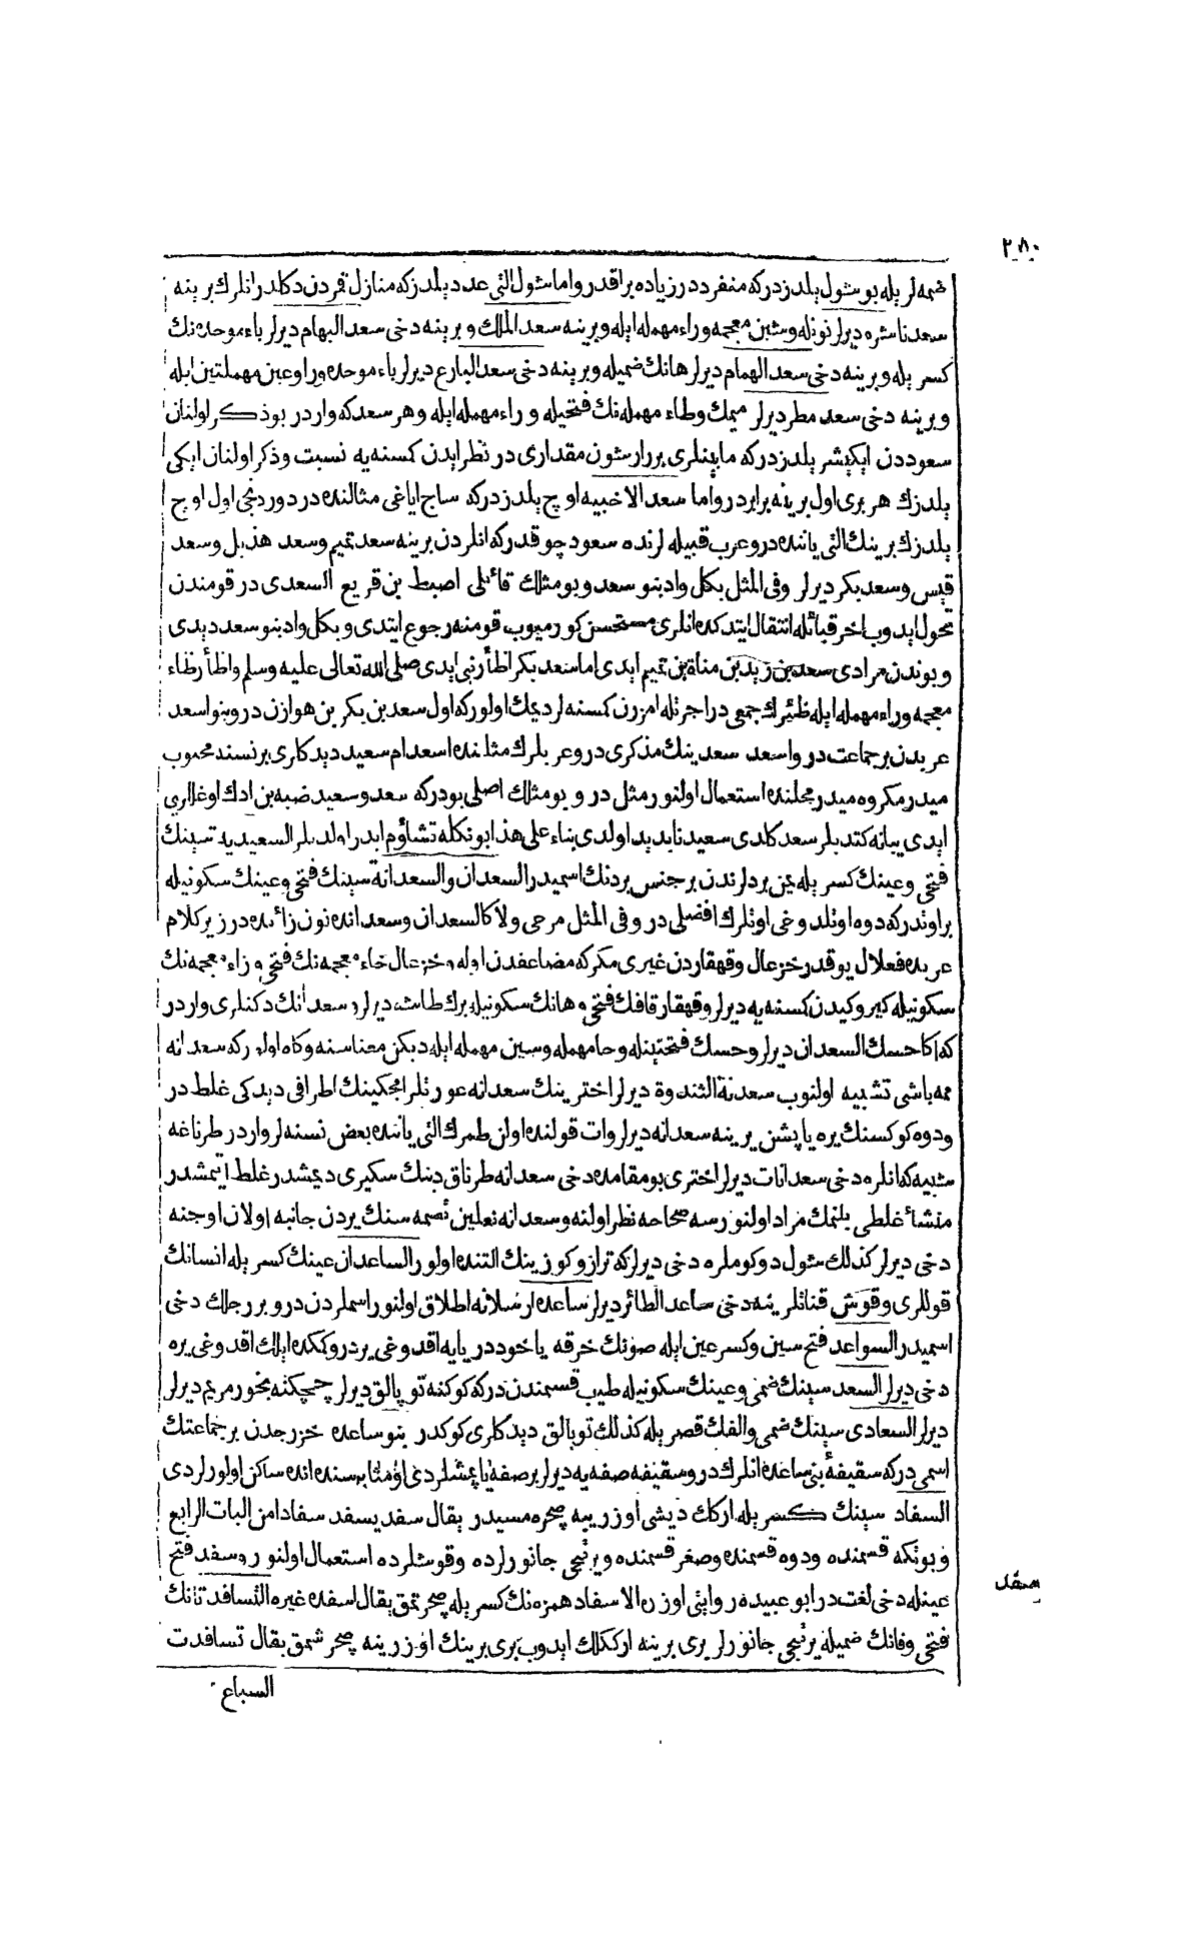 ٢٨٠
ضمه لر يله بو شول يلدزدركه منفرددر زياده براقدر واما شول التى عدد يلدزكه منازل قمردن دكلدر انلرك برينه
سعد ناشره ديرلر نونله وشين معجمه وراء مهمله ايله وبرينه سعد الملك وبرينه دخى سعد البهام ديرلر باء موحده نك
كسريله وبرينه دخى سعد الهمام ديرلر هانك ضميله وبرينه دخى سعد البارع ديرلر باء موحده ورا وعين مهملتين ايله
وبرينه دخى سعد مطر ديرلر ميمك وطاء مهمله نك فتحيله وراء مهمله ايله وهر سعدكه واردر بو ذكر اولنان
سعوددن ايكيشر يلدزدركه مابينلرى برر ارشون مقدارى در نظر ايدن كسنه يه نسبت وذكر اولنان ايكى
يلدزك هر برى اول برينه برابردر واما سعد الاخبيه اوچ يلدزدركه ساج اياغى مثالنده در دوردنجى اول اوچ
يلدزك برينك التى ياننده در وعرب قبيله لرنده سعود چوقدركه انلردن برينه سعد تميم وسعد هذيل وسعد
قيس وسعد بكر ديرلر وفى المثل بكل واد بنو سعد وبو مثلك قائلى اصبط بن قريع السعدى در قومندن
تحول ايدوب اخر قبائله انتقال ايتدكده انلرى مستحسن كورميوب قومنه رجوع ايتدى وبكل واد بنو سعد ديدى
وبوندن مرادى سعد بن زيد بن مناة بن تميم ايدى اما سعد بكر اظأر نبى ايدى صلى الله تعالى عليه وسلم واظأر ظاء
معجمه وراء مهمله ايله ظئرك جمعى در اجرتله امزرن كسنه لر ديمك اولوركه اول سعد بن بكر بن هوازن در وبنو اسعد
عربدن بر جماعت در واسعد سعدينك مذكرى در وعربلرك مثلنده اسعد ام سعيد ديدكلرى بر نسنه محبوب
ميدر مكروه ميدر محلنده استعمال اولنور مثل در وبو مثلك اصلى بودركه سعد وسعيد ضبه بن ادك اوغللرى
ايدى يبانه كتديلر سعد كلدى سعيد نابديد اولدى بناء على هذا بونكله تشاؤم ايدر اولديلر السعيديه سينك
فتحى وعينك كسريله يمن بردلرندن بر جنس بردنك اسميدر السعدان والسعدانة سينك فتحى وعينك سكونيله
بر اوتدركه دوه اوتلدوغى اوتلرك افضلى در وفى المثل مرعى ولا كالسعدان وسعدانده نون زائده در زيرا كلام
عربده فعلال يوقدر خزعال وقهقاردن غيرى مكركه مضاعفدن اوله وخزعال خاء معجمه نك فتحى وزاء معجمه نك
سكونيله كيرو كيدن كسنه يه ديرلر وقهقار قافك فتحى وهانك سكونيله برك طاشه ديرلر وسعدانك دكنلرى واردر
كه اكا حسك السعدان ديرلر وحسك فتحتينله وحا مهمله وسين مهمله ايله ديكن معناسنه وكاه اولوركه سعدانه
مه باشى تشبيه اولنوب سعدنة الثندوة ديرلر اخترينك سعدانه عورتلر امجكينك اطرافى ديدكى غلط در
ودوه كوكسنك يره ياپشن يرينه سعدانه ديرلر وات قولنده اولن طمرك التى ياننده بعض نسنه لر واردر طرناغه
شبيه كه انلره دخى سعدانات ديرلر اخترى بو مقامده دخى سعدانه طرناق دبنك سكيرى ديمشدر غلط ايتمشدر
منشأ غلطى بلنمك مراد اولنورسه صحاحه نظر اولنه وسعدانه نعلين تصمه سنك يردن جانبه اولان اوجنه
دخى ديرلر كذلك شول دوكوملره دخى ديرلركه ترازو كوزينك التنده اولور الساعدان عينك كسريله انسانك
قوللرى وقوش قناتلرينه دخى ساعد الطائر ديرلر ساعده ارسلانه اطلاق اولنور اسملردن در وبر رجلك دخى
اسميدر السواعد فتح سين وكسر عين ايله صونك خرقه ياخود دريايه اقدوغى يردر وككده ايلك اقدوغى يره
دخى ديرلر السعد سينك ضمى وعينك سكونيله طيب قسمندن دركه كوكنه توپالق ديرلر چيچكنه بخور مريم ديرلر
ديرلر السعادى سينك ضمى والفك قصريله كذلك توپالق ديدكلرى كوكدر بنو ساعده خزرجدن بر جماعتك
اسمى دركه سقيفهٔ بنى ساعده انلرك در وسقيفه صفه يه ديرلر بر صفه ياپمشلردى او مثابه سنده انده ساكن اولورلردى
السفاد سينك كسريله اركك ديشى اوزرينه صچره مسيدر يقال سفد يسفد سفادا من الباب الرابع
وبونكه قسمنده ودوه قسمنده وصغر قسمنده ويرتيجى جانورلرده وقوشلرده استعمال اولنور وسفد فتح
عينله دخى لغت در ابو عبيده روايتى اوزره الاسفاد همزه نك كسريله صچرتمق يقال اسفده غيره التسافد تانك
فتحى وفانك ضميله يرتيجى جانورلر برى برينه ارككلك ايدوب برى برينك اوزرينه صچرشمق يقال تسافدت
السباع